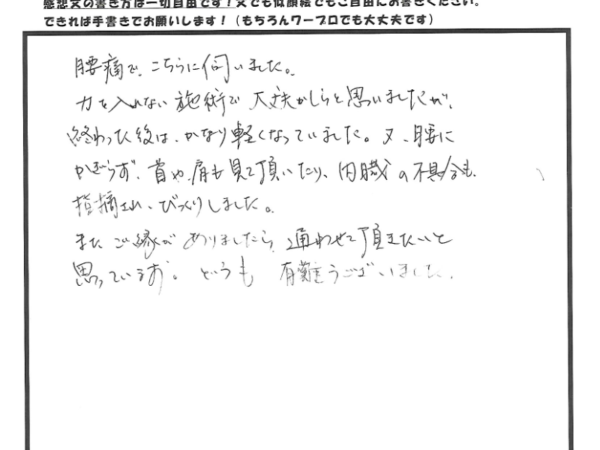 感想文の書き方は一切自由です！文でも似顔絵でもご自由にお書きください。
できれば手書きでお願いします！（もちろんワープロでも大丈夫です）
腰痛で、こちらに伺いました。
力を入れない施術で大丈夫かしらと思いましたが、
終わった後は、かなり軽くなっていました。又、腰に
かぎらず、首や、肩も見て頂いたり、内臓の不具合も
指摘され、びっくりしました。
またご縁がありましたら、通わせて頂きたいと
思っています。どうも有難うございました。